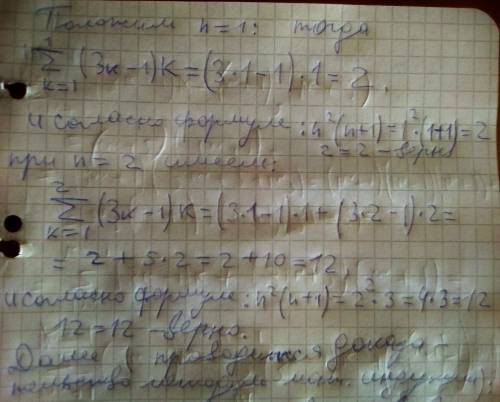 Положим n=1: тогда
1
∑ (3к-1)к=(3·1-1)·1=2,
к=1
и согласно формуле: n²(n+1)=1²·(1+1)=2
2=2-верно
при n=2 имеем:
2
∑ (3к-1)к=(3·1-1)·1+(3·2-1)·2=
к=1
= 2+5·2=2+10=12,
и согласно формуле: n²(n+1)=2²·3=4·3=12
12=12-верно.
Далее проводится доказа-
тельство методом мат. индукции.